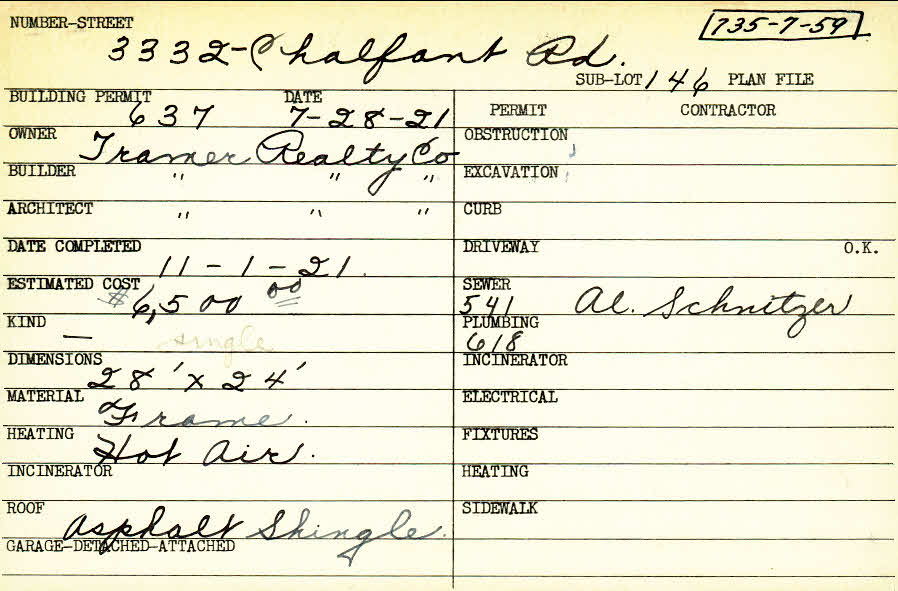 NUMBER-STREET 735-7-59
3332-Chalfant Rd.
SUB-LOT 146 PLAN FILE
BUILDING PERMIT DATE
637 7-28-21
PERMIT CONTRACTOR
OWNER Tramer Realty Co
OBSTRUCTION
BUILDER " " "
EXCAVATION
ARCHITECT " " "
CURB
DATE COMPLETED
11-1-21.
DRIVEWAY O.K.
ESTIMATED COST
$6,500 00
SEWER
541 Al. Schnitzer
KIND
— single
PLUMBING
618
DIMENSIONS
28' x 24'
INCINERATOR
MATERIAL
Frame.
ELECTRICAL
HEATING
Hot Air.
FIXTURES
INCINERATOR
HEATING
ROOF
Asphalt Shingle.
SIDEWALK
GARAGE-DETACHED-ATTACHED